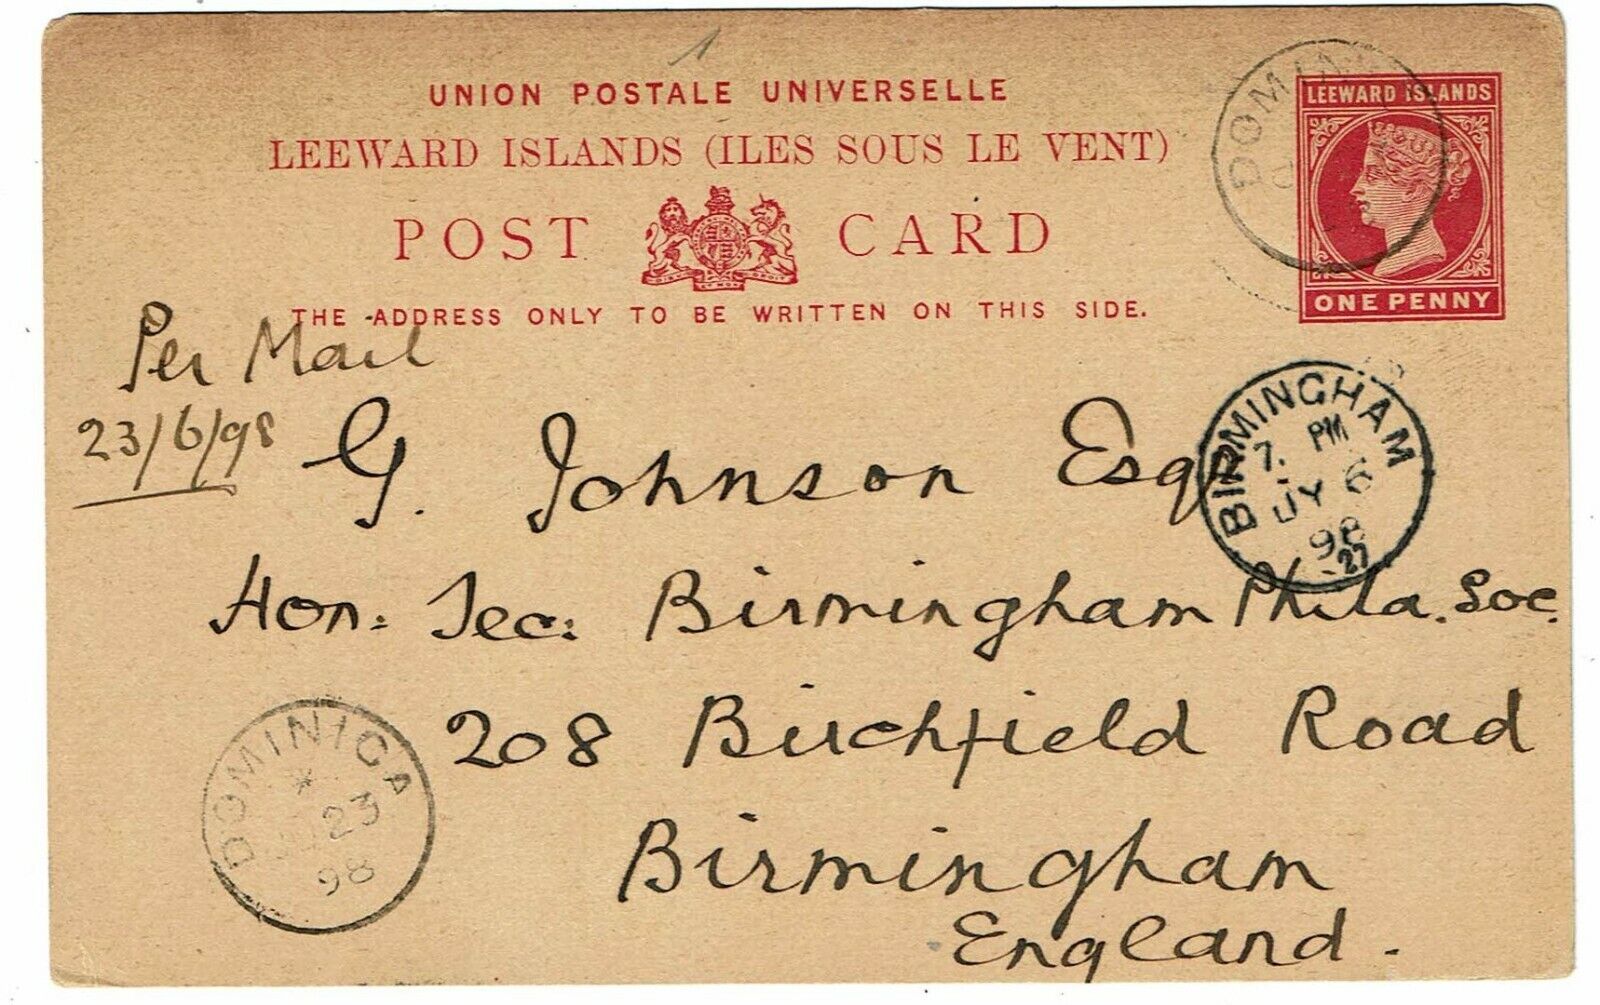 UNION POSTALE UNIVERSELLE
LEEWARD ISLANDS (ILES SOUS LE VENT)
POST CARD
THE ADDRESS ONLY TO BE WRITTEN ON THIS SIDE.
LEEWARD ISLANDS
ONE PENNY
Per Mail
23/6/98
G. Johnson Esqr
Hon: Sec: Birmingham Phila. Soc.
208 Birchfield Road
Birmingham
England.
BIRMINGHAM
7. PM
JY 6
98
27
DOMINICA
23
98